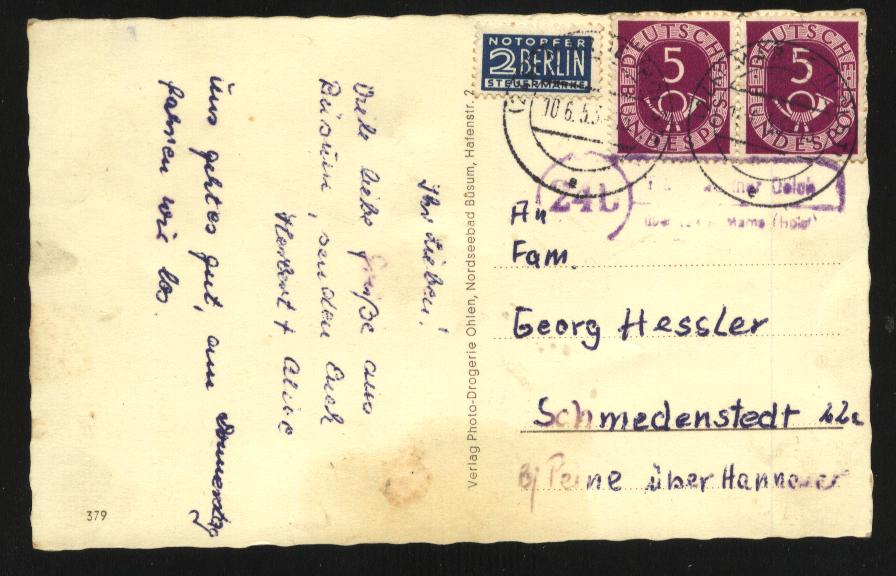 Ihr Lieben!
Viele liebe Grüße aus
Büsum, senden Euch
Herbert + Aline
Uns geht es gut, am Donnerstag
fahren wir los.
379
Verlag Photo-Drogerie Ohlen, Nordseebad Büsum, Hafenstr. 2
NOTOPFER
2 BERLIN
STEUERMARKE
DEUTSCHE BUNDESPOST
5
DEUTSCHE BUNDESPOST
5
10.6.5
24b
über (Holst)
An
Fam.
Georg Hessler
Schmedenstedt 22a
B/Peine über Hannover